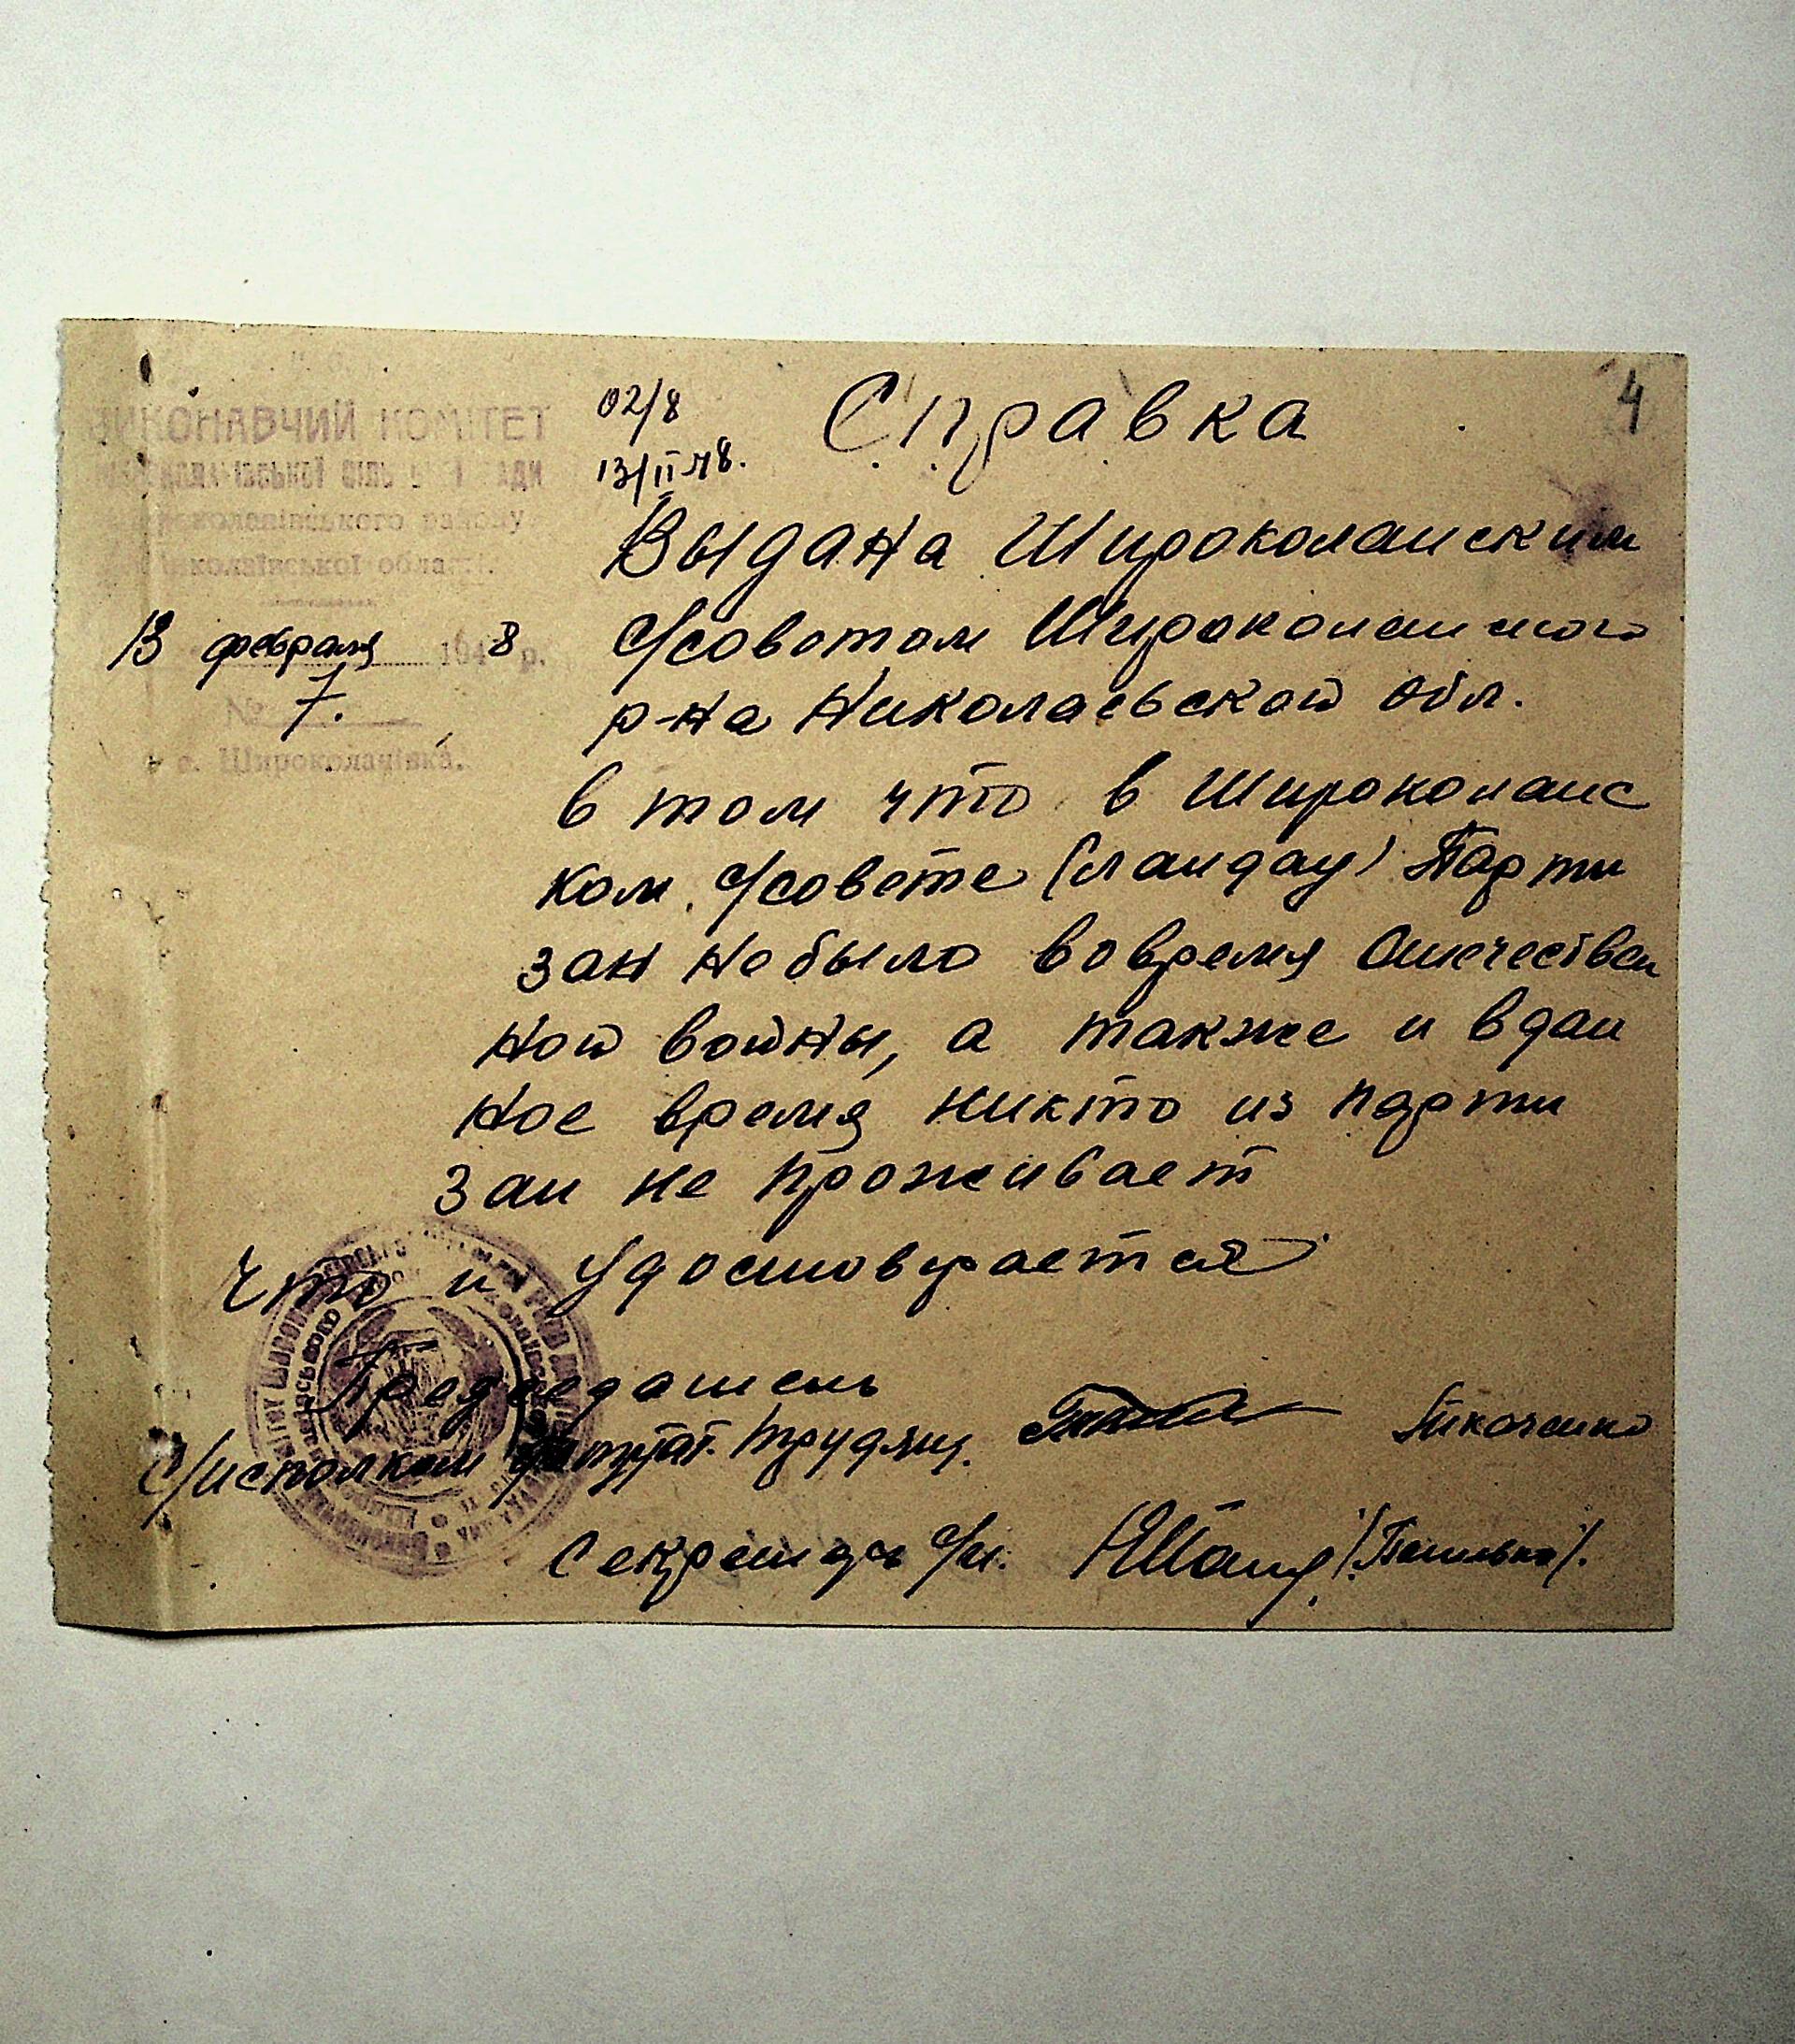 4
ВИКОНАВЧИЙ КОМІТЕТ
району
області.
13 февраля 1948 р.
№ 7.
с. Широколанівка.
02/8
13/II 48.
Справка
Выдана Широколанским
с/советом Широколанского
р-на Николаевской обл.
в том что в Широколанс
ком с/совете (Ландау) Парти
зан небыло вовремя Отечествен
ной войны, а также и вдан
ное время никто из парти
зан не проживает
Что и удостоверается
Председатель
с/исполком депутат. трудящ.
Секретарь с/и.